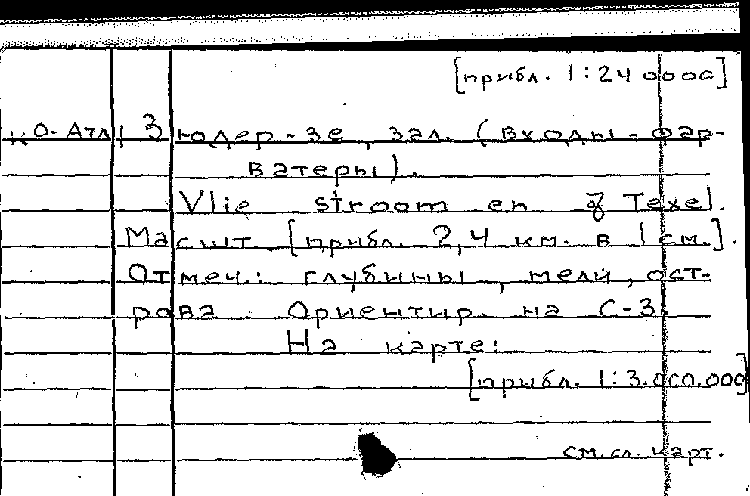 [прибл. 1:240000]
КО-АТЛ Зюдер-зе, зал. (входы - фар-
ватеры).
Vlie stroom en Texel.
Масшт. [прибл. 2,4 км. в 1 см.].
Отмеч.: глубины, мели, ост-
рова Ориентир. на С-З.
На карте:
[прибл. 1:3.000.000]
см. сл. карт.